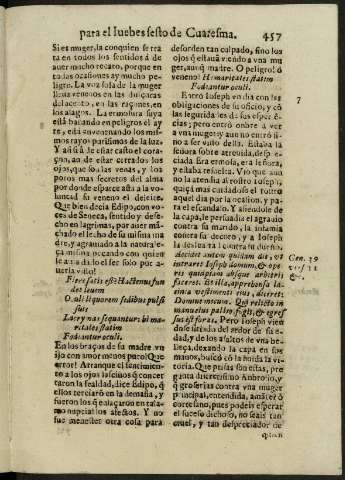 para el Iuebes sesto de Cuaresma.
457
Si es muger, la conquien se trata
en todos los sentidos á de
auer mucho recato, porque en
tales ocasiones ay mucho peligro.
La voz sola de la muger
llena venenos en las
del acento, en las raçones, en
los alagos. La ermosura suya
está bañando en peligros el ayre,
está envenenando los mismos
rayos purisimos de la luz.
Y assi à de estar casto el coraçon,
an de estar cerrados los ojos,
que son las venas, y los
poros mas secretos del alma
por donde esparce asta a la voluntad
su veneno el deleite.
Que bien decia Edipo, con voces
de Seneca, sentido y desecho
en lagrimas, por auer manchado
el lecho de su misma madre,
y agraniado a la naturaleça
misma pecando con quien
le auia dado el ser solo por
auerla visto!
Flere satis est? Hactenus fundes
leuem
Oculi liquorem sedibus pulsi
suis
Lacrymas sequantur: hi maritales
statim
Fodiantur oculi.
En los braços de su madre vn
ijo con amor menos puro! Que
error! Arranque el sentimiento
a los ojos lascivos q̃ concertaron
la fealdad, dice Edipo, q̃
ellos terciarõ en la demasia, y
fueron los q̃ enlaçaron en talamo
nupcial los afectos. Y no
fue menester otra cosa para
desorden tan culpado, sino los
ojos q̃ estauã viendo a vna muger,
aunq̃ madre. O peligro! ò
veneno! Hi maritales statim
Fodiantur oculi.
7
Entrò Ioseph vn dia con las
obligaciones de su oficio, y cõ
las seguridades de sus especies;
pero entrò onbre à ver
a vna muger: y aun no entrò
sino a ser visto della. Estaba la
señora sobre atrevida, despeciada
era ermosa, era señora,
y estaba resuelta. Vio que aun
no la atendia desatento Ioseph,
quiçà mas cuidadoso el rostro
aquel dia por la ocasion, y para
el escandalo. Y asiendole de
la capa, le persuadia el agravio
contra su marido, la infamia
contra su decoro, y a Ioseph
la deslealtad contra su dueño.
Accidit autem quidam die, vt
intraret Ioseph domum, & operis
quippiam absque arbitris
faceret. Et illa, apprehensa lacinia
vestimenti eius, diceret:
Dormi mecum. Qui relicto in
manu eius pallio, fugit, & egressus
est foras. Pero Ioseph viendose
sitiado del ardor de su edad,
y de los asaltos de vna belleça,
dexando la capa en sus
manos, buscò cõ la huida la vitoria.
Que prisas son estas, pregunta
discretisimo Anbrosio, y
q̃ groserias contra vna muger
principal, entendida, amãte? ò
cortesano, pues podeis esperar
el suceso dichoso, no seais tan
cruel, y tan despreciador de
Gen. 39
vers. 11
&c.